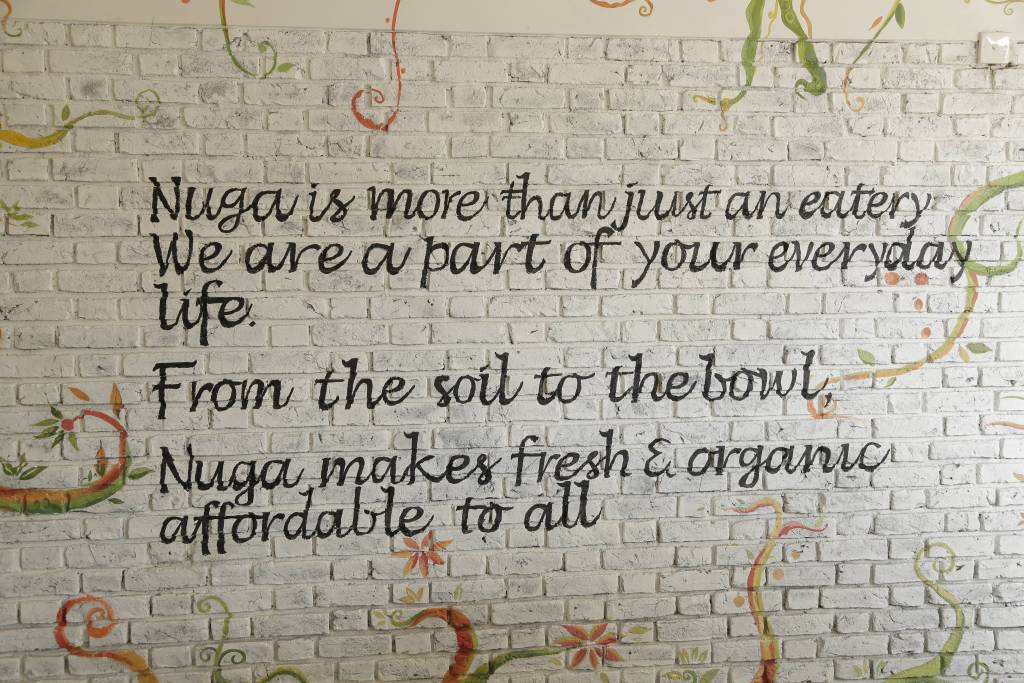 Nuga is more than juust an eatery
We are a part of your everyday
life.
From the soil to the bowl,
Nuga makes fresh & organic
affordable to all